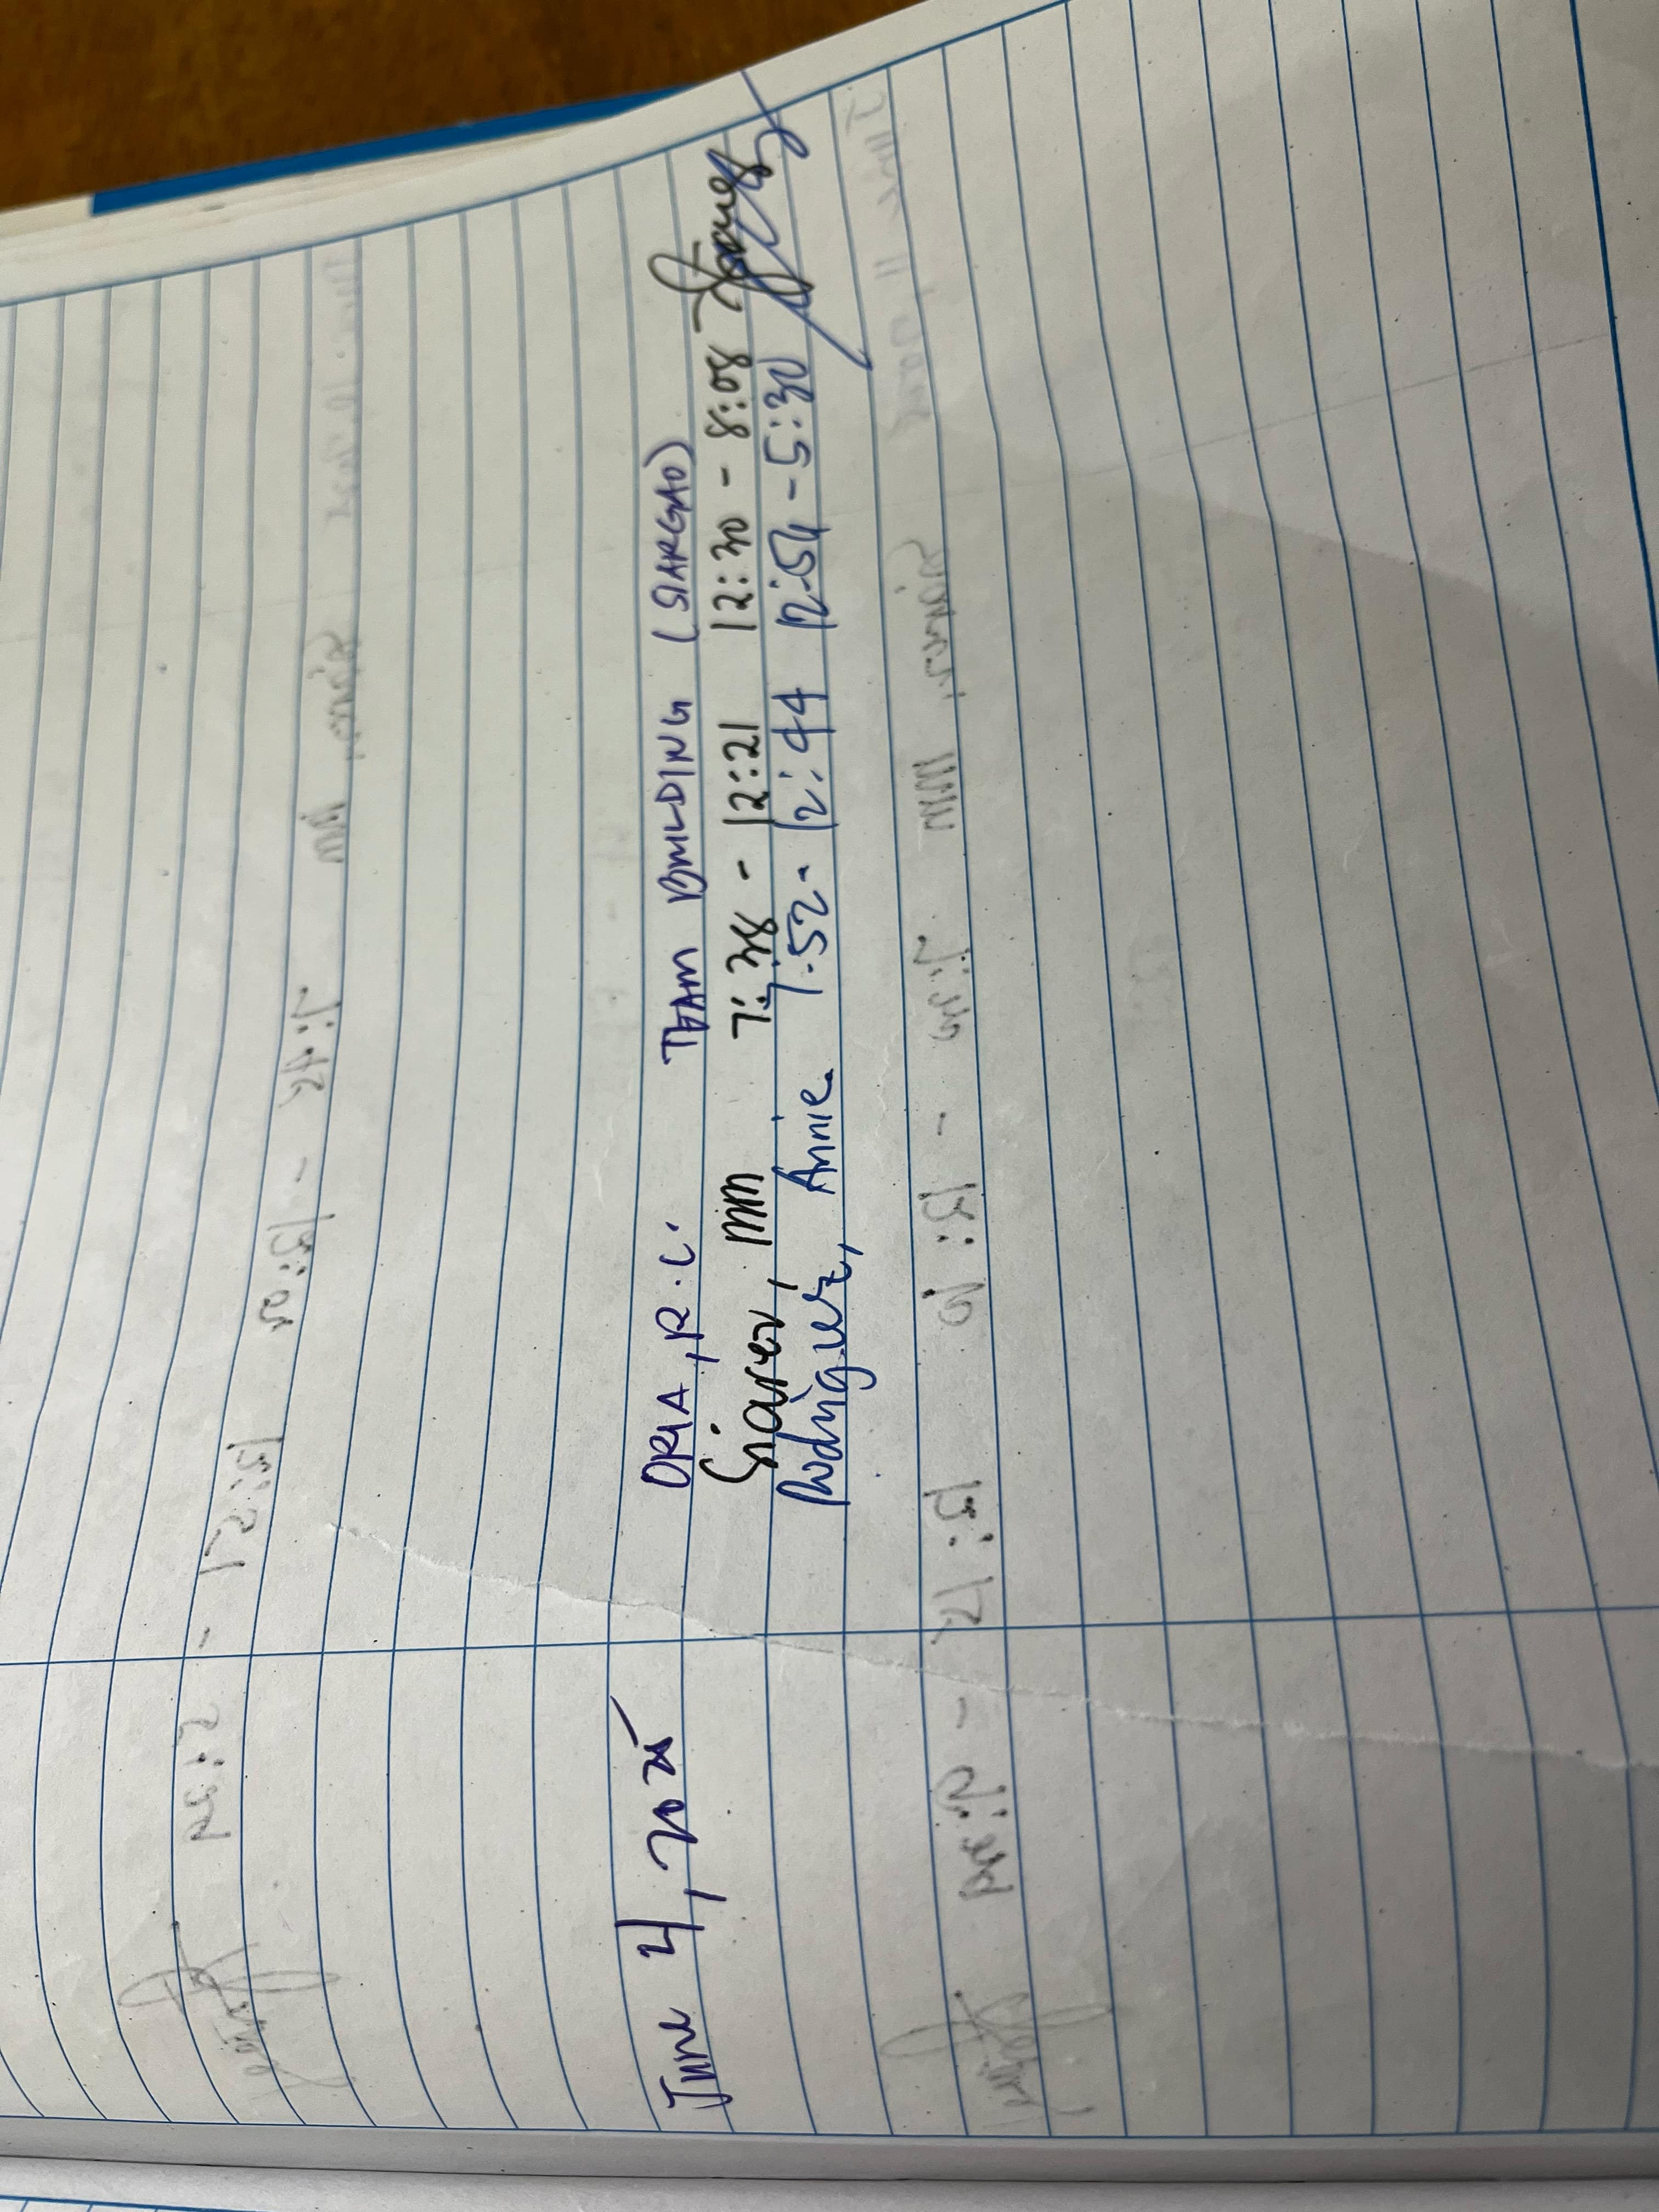 June 4, 2025 ORIA, R.C. TEAM BUILDING (SIARGAO)
Siarez, MM 7:38 - 12:21 12:30 - 8:08
Rodriguez, Annie 7:52 - 12:44 12:54 - 5:30